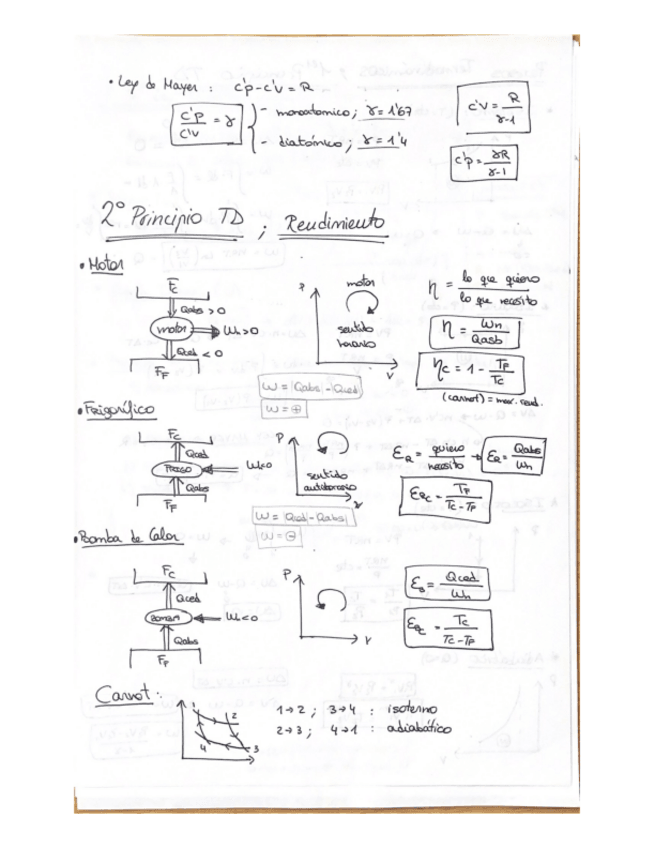 • Ley de Mayer : c'p - c'v = R
c'p / c'v = γ
- monoatomico ; γ = 1'67
- diatómico ; γ = 1'4
c'v = R / γ-1
c'p = γR / γ-1
2º Principio TD ; Rendimiento
• Motor
Fc
Qabs > 0
motor
Wn > 0
Qced < 0
FF
P
motor
sentido
horario
V
W = |Qabs| - Qced
W = ⊕
η = lo que quiero / lo que necesito
η = Wn / Qasb
ηc = 1 - TF / Tc
(carnot) = max. rend.
• Frigorífico
Fc
Qced
W<0
Qabs
FF
P
sentido
antihorario
W = |Qced - Qabs|
W = ⊖
ER = quiero / necesito → ER = Qabs / Wn
ERC = TF / TC - TF
• Bomba de Calor
Fc
Qced
BOMBA
W<0
Qabs
FF
P
V
EB = Qced / Wn
EBC = Tc / Tc - TF
Carnot :
1
2
4
3
1→2 ; 3→4 : isotermo
2→3 ; 4→1 : adiabático